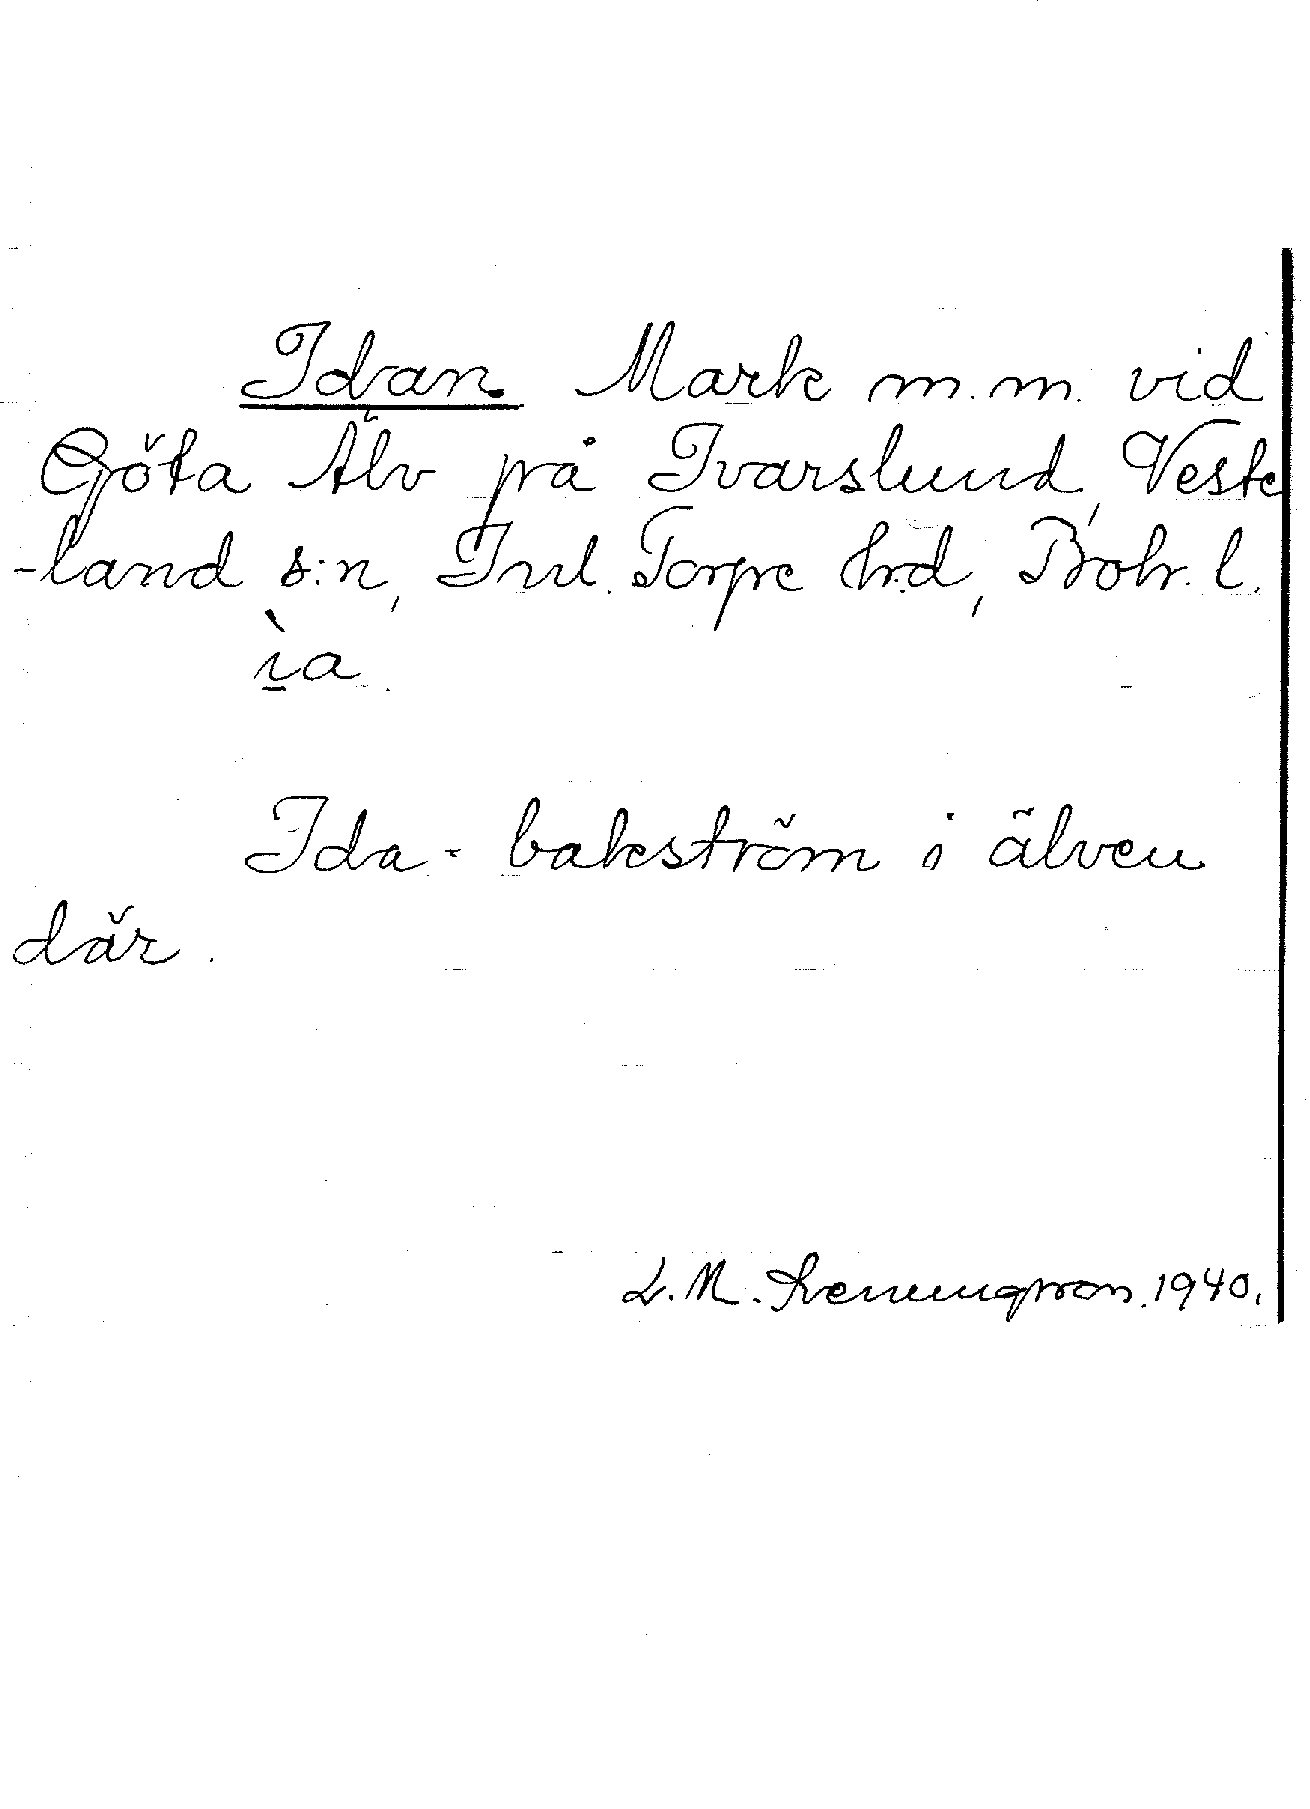 Idan. Mark m.m. vid
Göta Älv på Ivarslund, Veste
-land s:n, Inl. Torpe hrd, Boh. l.
ìa.
Ida - bakström i älven
där.
L. M. 1940.